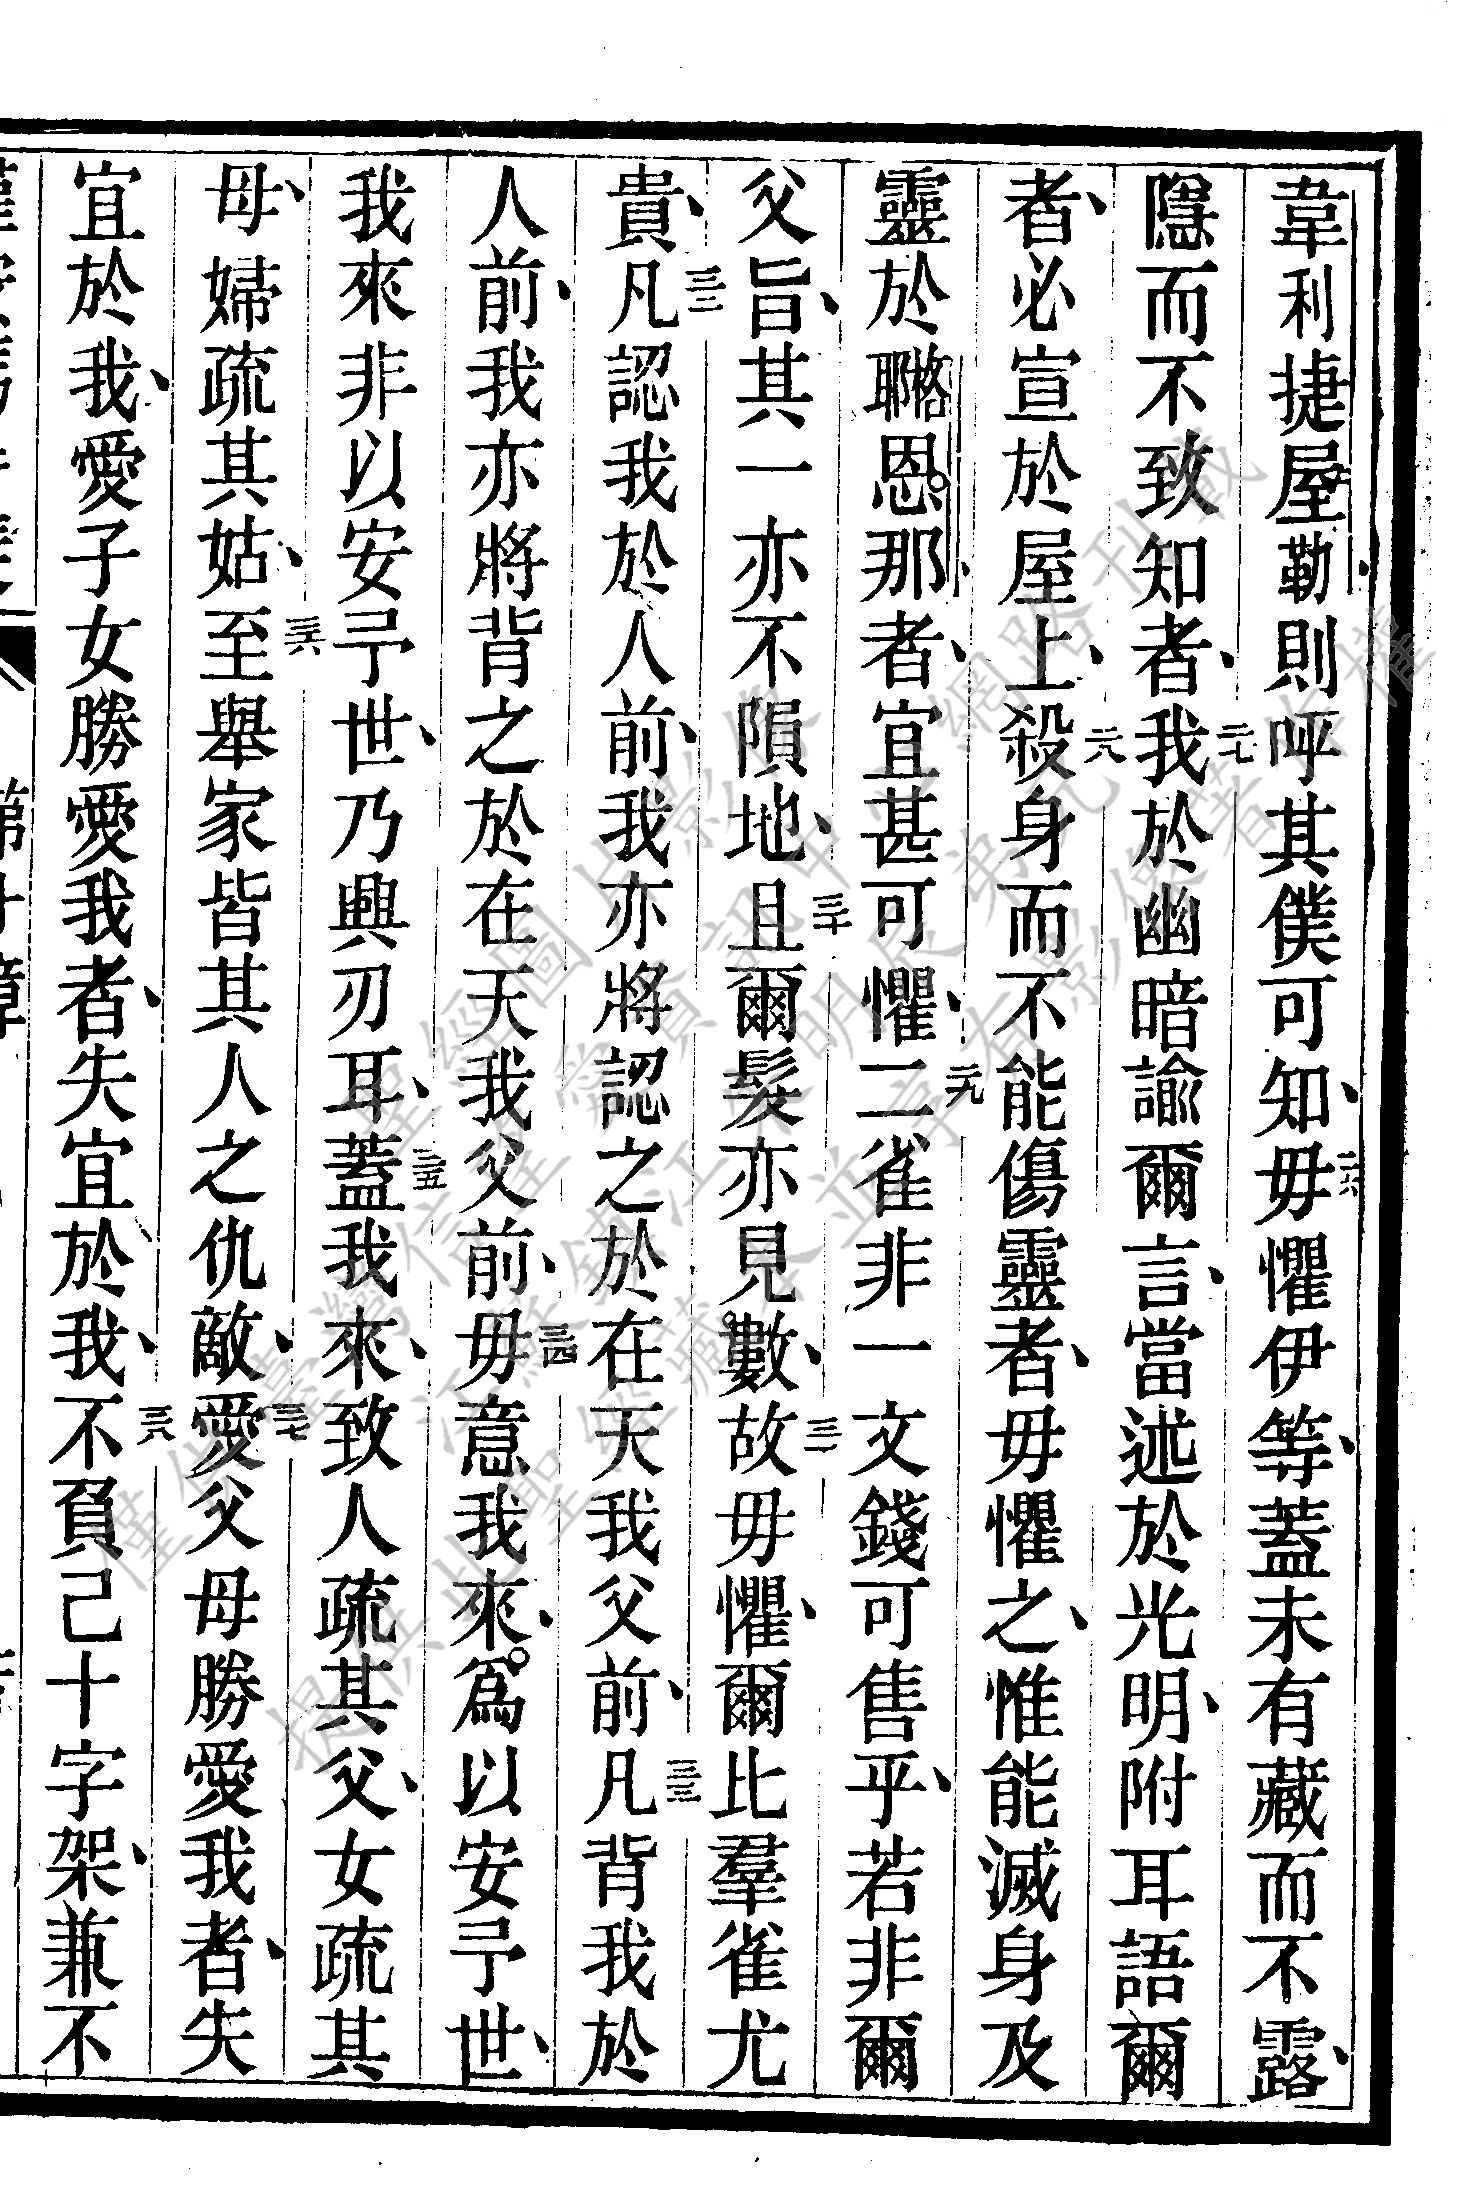 韋利捷屋勒、則呼其僕可知、二六毋懼伊等、蓋未有藏而不露、
隱而不致知者、二七我於幽暗諭爾言、當述於光明、附耳語爾
者、必宣於屋上、二八殺身而不能傷靈者、毋懼之、惟能滅身及
靈於𦗖恩。那者、宜甚可懼、二九二雀非一文錢可售乎、若非爾
父旨、其一亦不隕地、三十且爾髮亦見數、三一故毋懼、爾比羣雀尤
貴、三二凡認我於人前、我亦將認之於在天我父前、三三凡背我於
人前、我亦將背之於在天我父前、三四毋意我來。為以安予世、
我來非以安予世、乃興刃耳、三五蓋我來、致人疏其父、女疏其
母、婦疏其姑、三六至舉家皆其人之仇敵、三七愛父母勝愛我者、失
宜於我、愛子女勝愛我者、失宜於我、三八不負己十字架、兼不